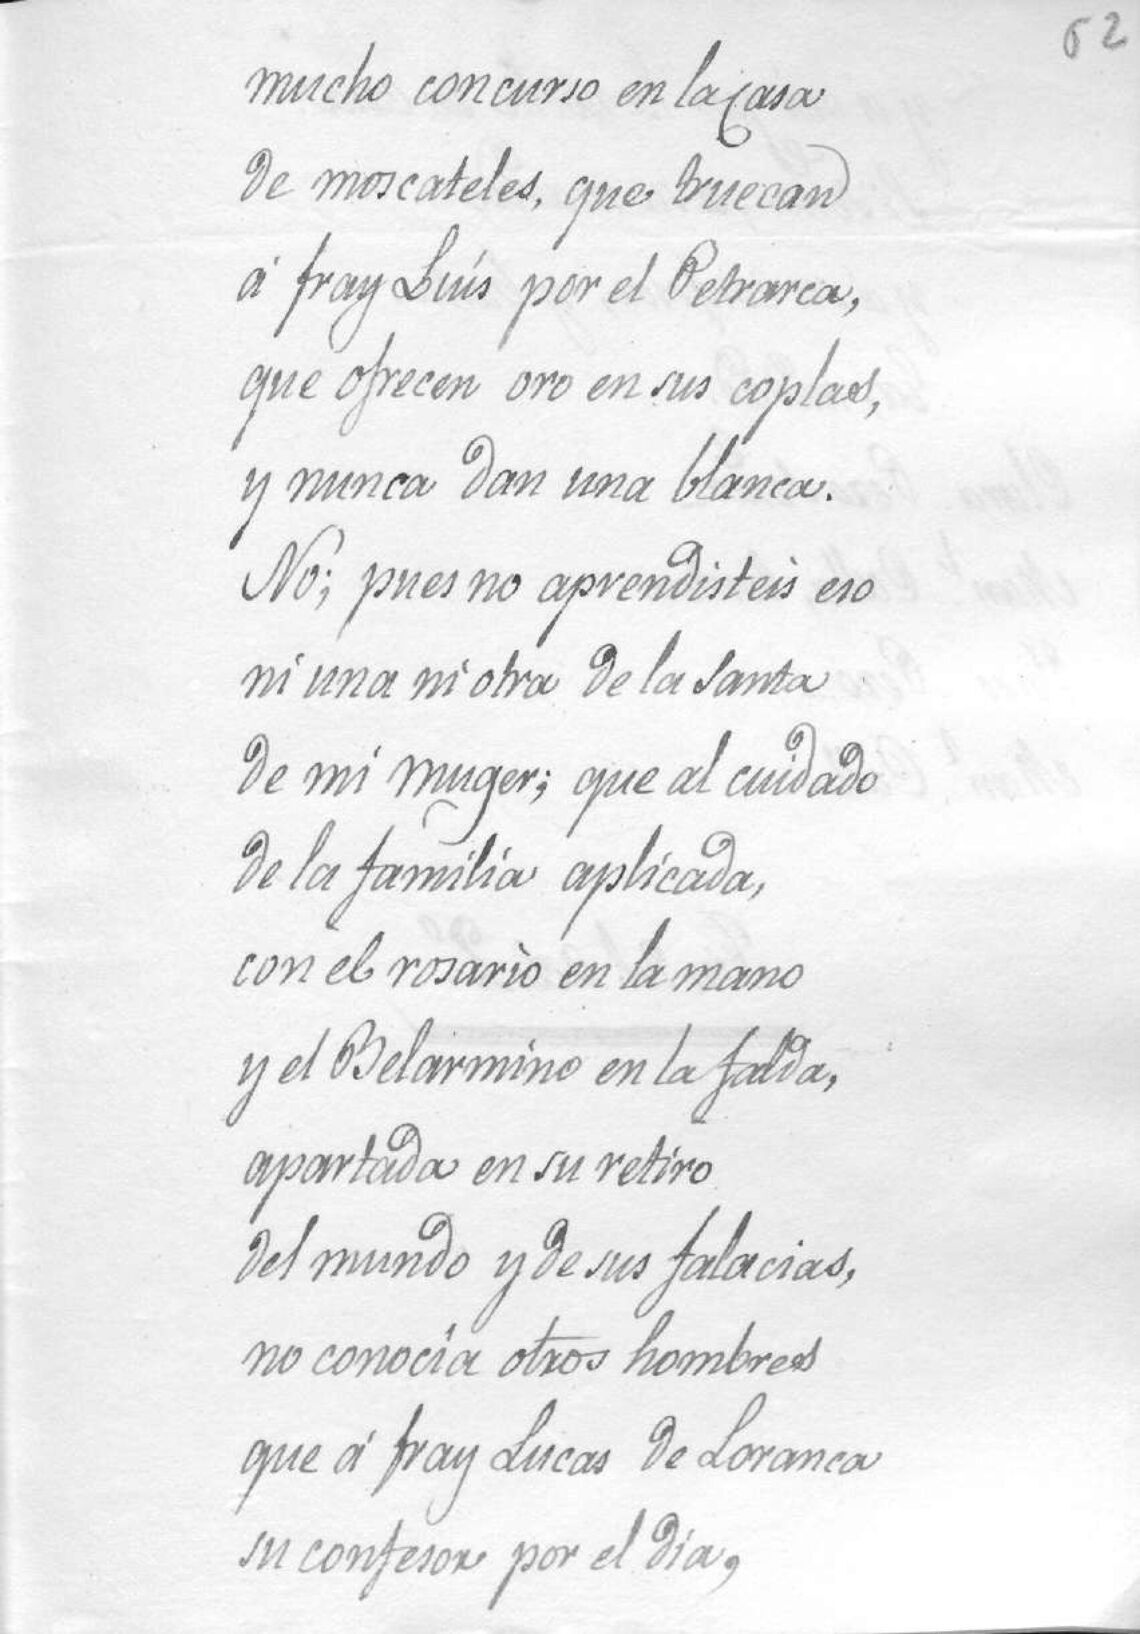 62
mucho concurso en la Casa
de moscateles, que truecan
á fray Luis por el Petrarca,
que ofrecen oro en sus coplas,
y nunca dan una blanca.
No; pues no aprendisteis eso
ni una ni otra de la Santa
de mi muger; que al cuidado
de la familia aplicada,
con el rosario en la mano
y el Belarmino en la falda,
apartada en su retiro
del mundo y de sus falacias,
no conocía otros hombres
que á fray Lucas de Loranca
su confesor por el dia,